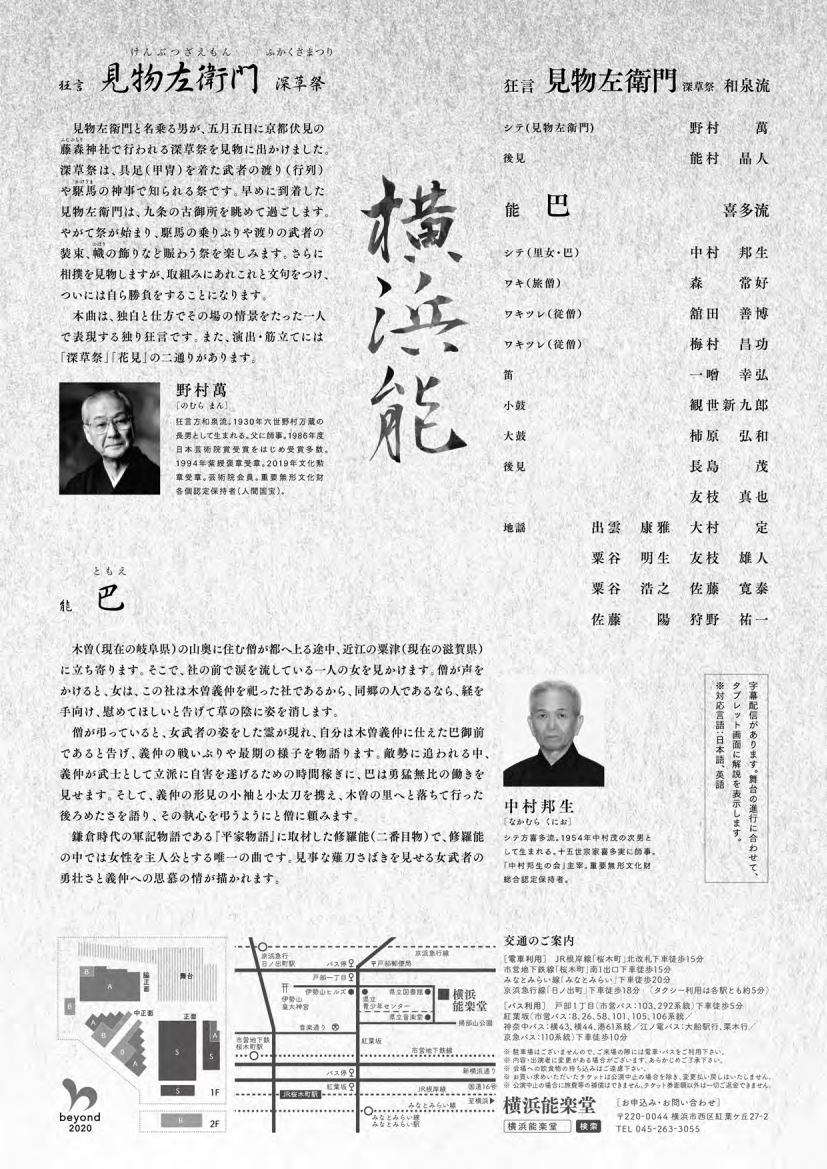 けんぶつざえもん ふかくさまつり
狂言 見物左衛門 深草祭
見物左衛門と名乗る男が、五月五日に京都伏見の
ふじのもり
藤森神社で行われる深草祭を見物に出かけました。
深草祭は、具足(甲冑)を着た武者の渡り(行列)
かけうま
や駆馬の神事で知られる祭です。早めに到着した
見物左衛門は、九条の古御所を眺めて過ごします。
やがて祭が始まり、駆馬の乗りぶりや渡りの武者の
のぼり
装束、幟の飾りなど賑わう祭を楽しみます。さらに
相撲を見物しますが、取組みにあれこれと文句をつけ、
ついには自ら勝負をすることになります。
本曲は、独白と仕方でその場の情景をたった一人
で表現する独り狂言です。また、演出・筋立てには
「深草祭」「花見」の二通りがあります。
野村萬
[のむら まん]
狂言方和泉流。1930年六世野村万蔵の
長男として生まれる。父に師事。1986年度
日本芸術院賞受賞をはじめ受賞多数。
1994年紫綬褒章受章。2019年文化勲
章受章。芸術院会員。重要無形文化財
各個認定保持者(人間国宝)。
横浜能
狂言 見物左衛門 深草祭 和泉流
シテ(見物左衛門) 野村 萬
後見 能村 晶人
能 巴 喜多流
シテ(里女・巴) 中村 邦生
ワキ(旅僧) 森 常好
ワキツレ(従僧) 舘田 善博
ワキツレ(従僧) 梅村 昌功
笛 一噌 幸弘
小鼓 観世新九郎
大鼓 柿原 弘和
後見 長島 茂
友枝 真也
地謡 出雲 康雅 大村 定
粟谷 明生 友枝 雄人
粟谷 浩之 佐藤 寛泰
佐藤 陽 狩野 祐一
ともえ
能 巴
木曽(現在の岐阜県)の山奥に住む僧が都へ上る途中、近江の粟津(現在の滋賀県)
に立ち寄ります。そこで、社の前で涙を流している一人の女を見かけます。僧が声を
かけると、女は、この社は木曽義仲を祀った社であるから、同郷の人であるなら、経を
手向け、慰めてほしいと告げて草の陰に姿を消します。
僧が弔っていると、女武者の姿をした霊が現れ、自分は木曽義仲に仕えた巴御前
であると告げ、義仲の戦いぶりや最期の様子を物語ります。敵勢に追われる中、
義仲が武士として立派に自害を遂げるための時間稼ぎに、巴は勇猛無比の働きを
見せます。そして、義仲の形見の小袖と小太刀を携え、木曽の里へと落ちて行った
後ろめたさを語り、その執心を弔うようにと僧に頼みます。
鎌倉時代の軍記物語である『平家物語』に取材した修羅能(二番目物)で、修羅能
の中では女性を主人公とする唯一の曲です。見事な薙刀さばきを見せる女武者の
勇壮さと義仲への思慕の情が描かれます。
中村邦生
[なかむら くにお]
シテ方喜多流。1954年中村茂の次男と
して生まれる。十五世宗家喜多実に師事。
「中村邦生の会」主宰。重要無形文化財
総合認定保持者。
字幕配信があります。舞台の進行に合わせて、
タブレット画面に解説を表示します。
※対応言語:日本語、英語
B
A
脇正面
舞台
B
中正面
正面
A
B
A
B
S
A
S
S
1F
B
2F
beyond
2020
京浜急行
日ノ出町駅
バス停
〒戸部郵便局
京浜急行線
戸部一丁目
伊勢山ヒルズ
県立図書館
横浜
能楽堂
伊勢山
皇大神宮
県立
青少年センター
県立音楽堂
掃部山公園
音楽通り
紅葉坂
市営地下鉄
桜木町駅
市営地下鉄線
バス停
新横浜通り
紅葉坂
国道16号
JR桜木町駅
JR根岸線
至横浜▶
みなとみらい線
みなとみらい線
みなとみらい駅
交通のご案内
[電車利用] JR根岸線「桜木町」北改札下車徒歩15分
市営地下鉄線「桜木町」南1出口下車徒歩15分
みなとみらい線「みなとみらい」下車徒歩20分
京浜急行線「日ノ出町」下車徒歩18分 (タクシー利用は各駅とも約5分)
[バス利用] 戸部1丁目(市営バス:103、292系統)下車徒歩5分
紅葉坂(市営バス:8、26、58、101、105、106系統/
神奈中バス:横43、横44、港61系統/江ノ電バス:大船駅行、栗木行/
京急バス:110系統)下車徒歩10分
※ 駐車場はございませんので、ご来場の際には電車・バスをご利用下さい。
※ 内容・出演者に変更がある場合がございます。あらかじめご了承下さい。
※ 会場への飲食物の持ち込みはご遠慮下さい。
※ お買い求めいただいたチケットは公演中止の場合を除き、変更払い戻しはいたしません。
※ 公演中止の場合に旅費等の補償はできません。チケット券面額以外は一切ご返金できません。
横浜能楽堂
横浜能楽堂 検索
[お申込み・お問い合わせ]
〒220-0044 横浜市西区紅葉ケ丘27-2
TEL 045-263-3055